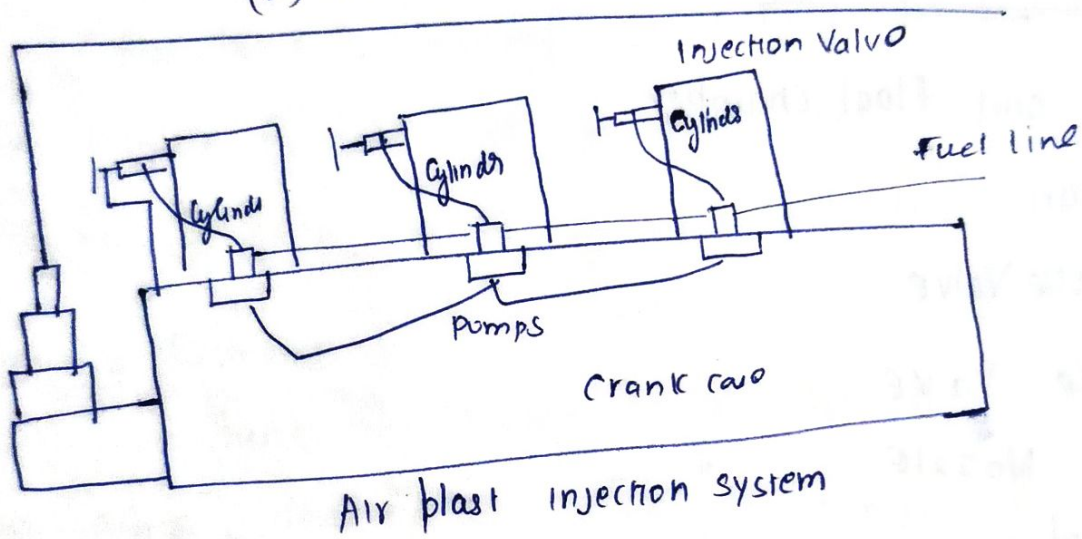 Injection Valve
Cylinds
Cylindr
Cylinds
Fuel line
Pomps
Crank case
Air blast injection system